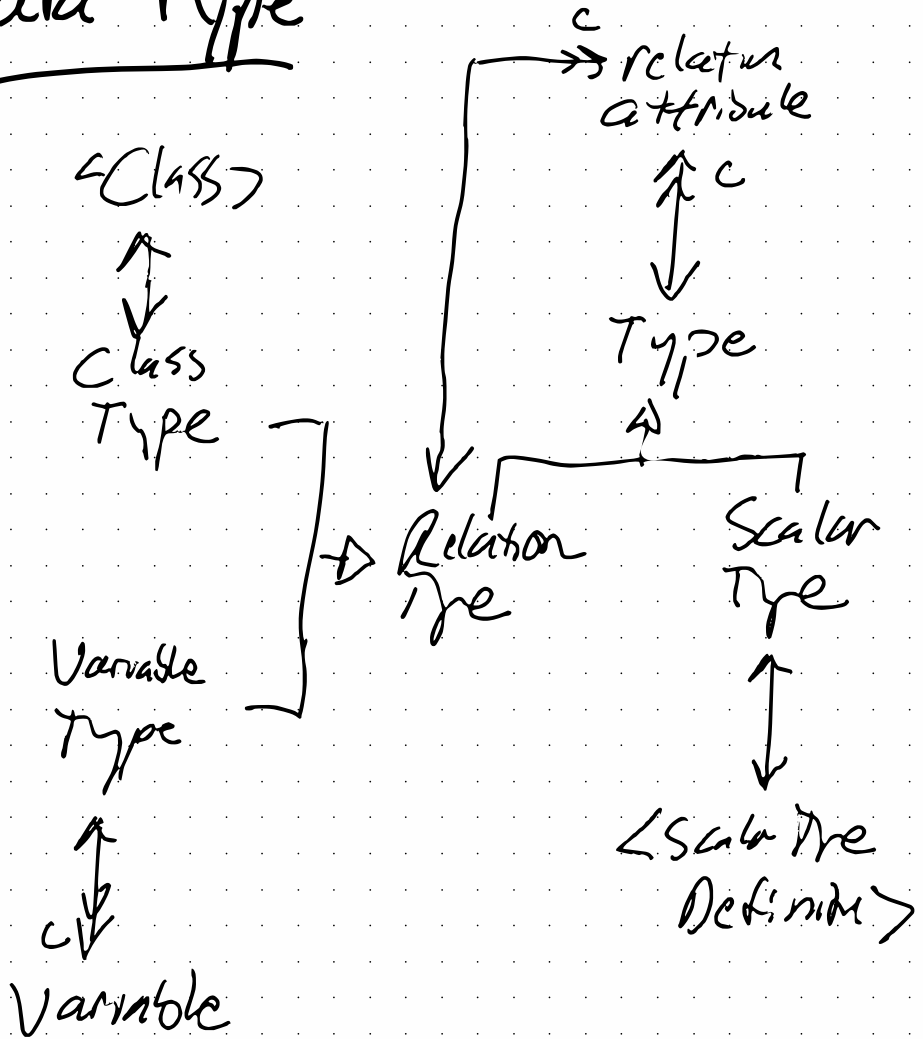 Type
c
relation
attribute
<Class>
c
Class
Type
Type
Relation
Type
Scalar
Type
Variable
Type
<Scalar Type
Definition>
c
Variable